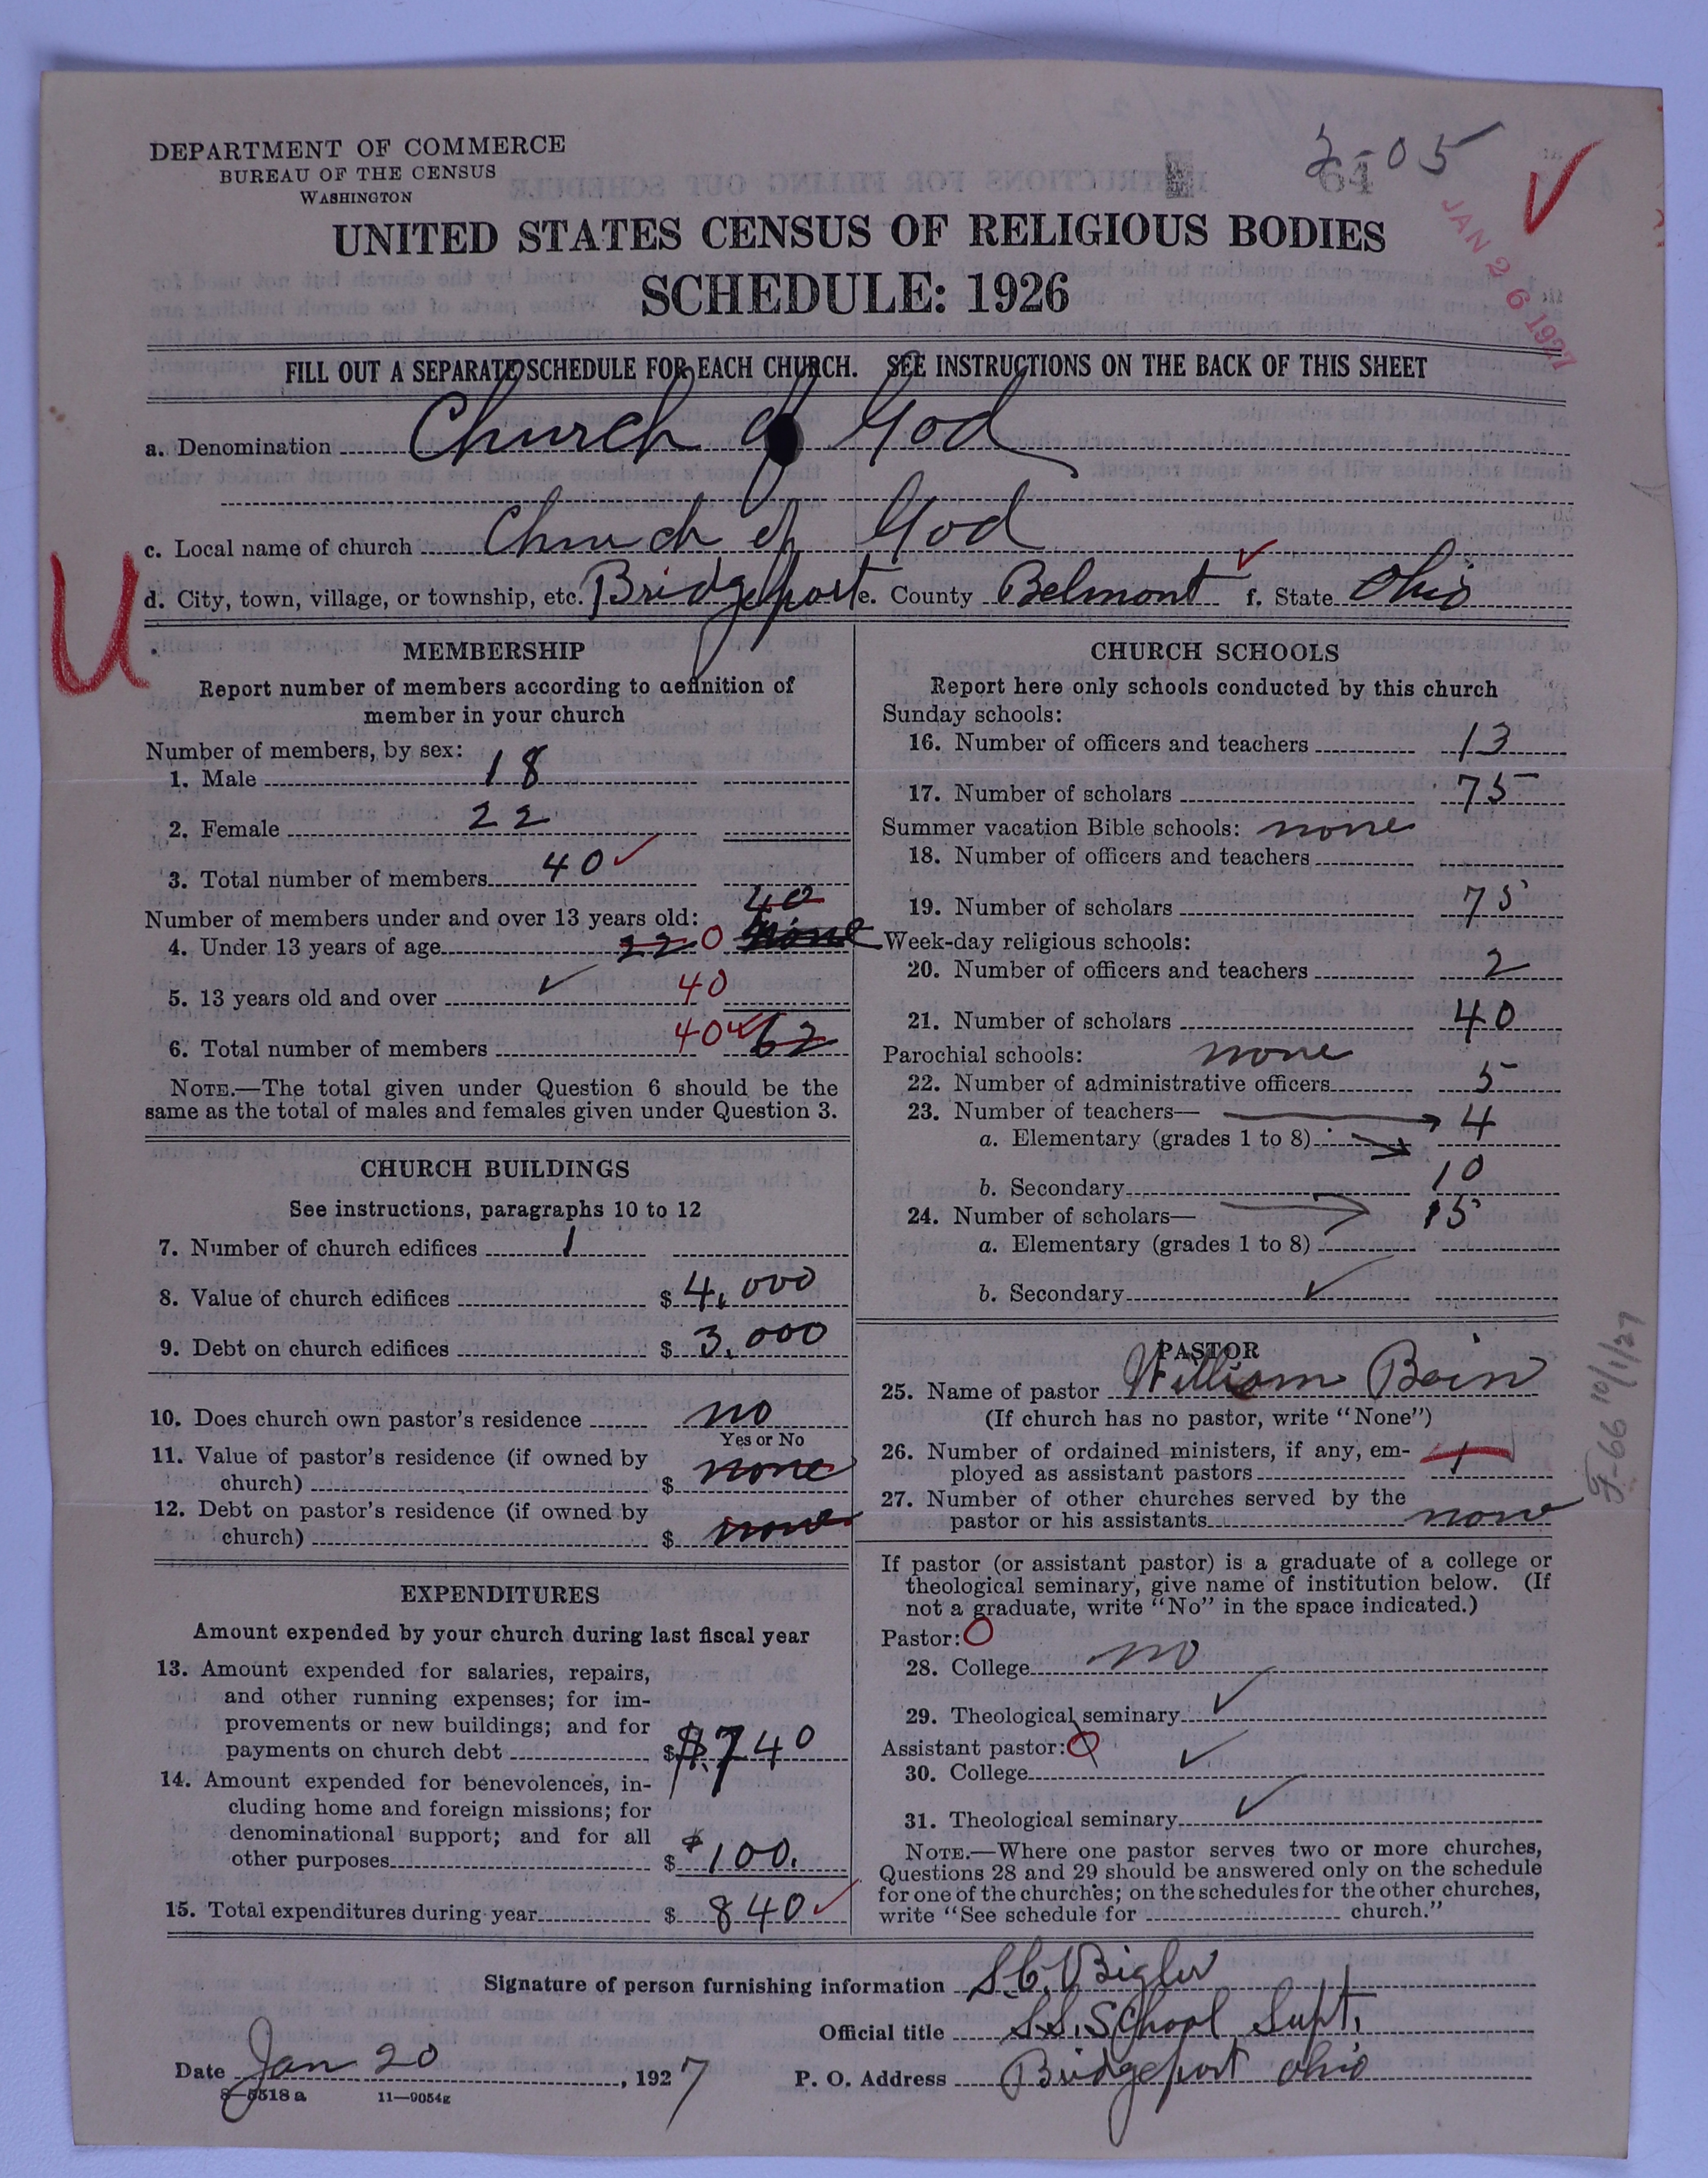 DEPARTMENT OF COMMERCE
BUREAU OF THE CENSUS
WASHINGTON
3-05
64
JAN 26 1927
UNITED STATES CENSUS OF RELIGIOUS BODIES
SCHEDULE: 1926
FILL OUT A SEPARATE SCHEDULE FOR EACH CHURCH. SEE INSTRUCTIONS ON THE BACK OF THIS SHEET
a. Denomination Church of God
c. Local name of church Church of God
U
d. City, town, village, or township, etc. Bridgeport e. County Belmont f. State Ohio
MEMBERSHIP
Report number of members according to definition of
member in your church
Number of members, by sex:
1. Male 18
2. Female 22
3. Total number of members 40
40
Number of members under and over 13 years old:
4. Under 13 years of age 22 0 none
5. 13 years old and over 40
6. Total number of members 40 62
NOTE.—The total given under Question 6 should be the
same as the total of males and females given under Question 3.
CHURCH BUILDINGS
See instructions, paragraphs 10 to 12
7. Number of church edifices 1
8. Value of church edifices $ 4,000
9. Debt on church edifices $ 3,000
10. Does church own pastor's residence no
Yes or No
11. Value of pastor's residence (if owned by
church) $ none
12. Debt on pastor's residence (if owned by
church) $ none
EXPENDITURES
Amount expended by your church during last fiscal year
13. Amount expended for salaries, repairs,
and other running expenses; for im-
provements or new buildings; and for
payments on church debt $ $740
14. Amount expended for benevolences, in-
cluding home and foreign missions; for
denominational support; and for all
other purposes $ $100.
15. Total expenditures during year $ 840
CHURCH SCHOOLS
Report here only schools conducted by this church
Sunday schools:
16. Number of officers and teachers 13
17. Number of scholars 75
Summer vacation Bible schools: none
18. Number of officers and teachers
19. Number of scholars 75
Week-day religious schools:
20. Number of officers and teachers 2
21. Number of scholars 40
Parochial schools: none
22. Number of administrative officers 5
23. Number of teachers— 4
a. Elementary (grades 1 to 8)
b. Secondary 10
24. Number of scholars— 15
a. Elementary (grades 1 to 8)
b. Secondary
PASTOR
25. Name of pastor William Bain
(If church has no pastor, write "None")
26. Number of ordained ministers, if any, em-
ployed as assistant pastors 1
27. Number of other churches served by the
pastor or his assistants none
If pastor (or assistant pastor) is a graduate of a college or
theological seminary, give name of institution below. (If
not a graduate, write "No" in the space indicated.)
Pastor: 0
28. College no
29. Theological seminary
Assistant pastor: 0
30. College
31. Theological seminary
NOTE.—Where one pastor serves two or more churches,
Questions 28 and 29 should be answered only on the schedule
for one of the churches; on the schedules for the other churches,
write "See schedule for church."
F-66 10/1/27
Signature of person furnishing information S.C. Bigler
Official title S.S. School Supt.
Date Jan 20, 1927 P. O. Address Bridgeport Ohio
8—5518 a 11—9054g